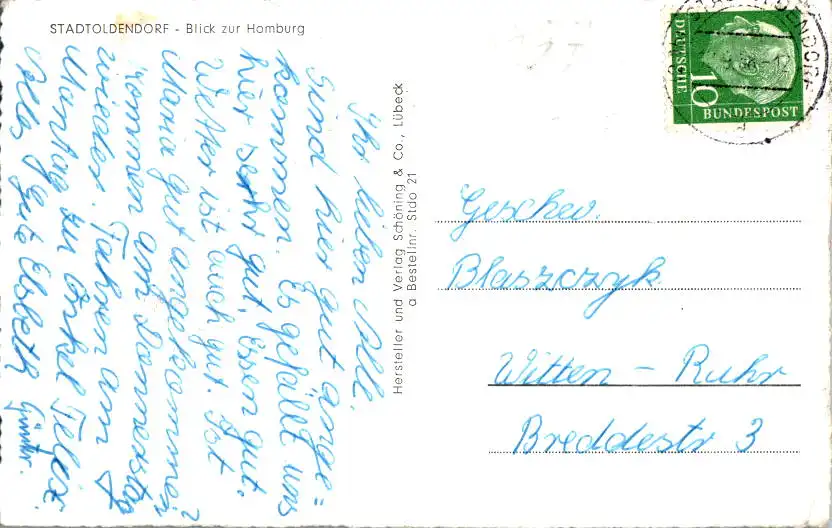 STADTOLDENDORF - Blick zur Homburg
Ihr lieben Alle.
Sind hier gut ange=
kommen. Es gefällt uns
hier sehr gut, Essen gut.
Wetter ist auch gut. Ist
Maria gut angekommen?
Kommen am Donnerstag
wieder. Fahren am
Montag zu Onkel Felix.
Alles gute Elsbeth Günter.
Hersteller und Verlag Schöning & Co., Lübeck
a Bestellnr. Stdo 21
STADTOLDENDORF
DEUTSCHE
10
BUNDESPOST
Geschw.
Blaszczyk.
Witten - Ruhr
Breddestr 3